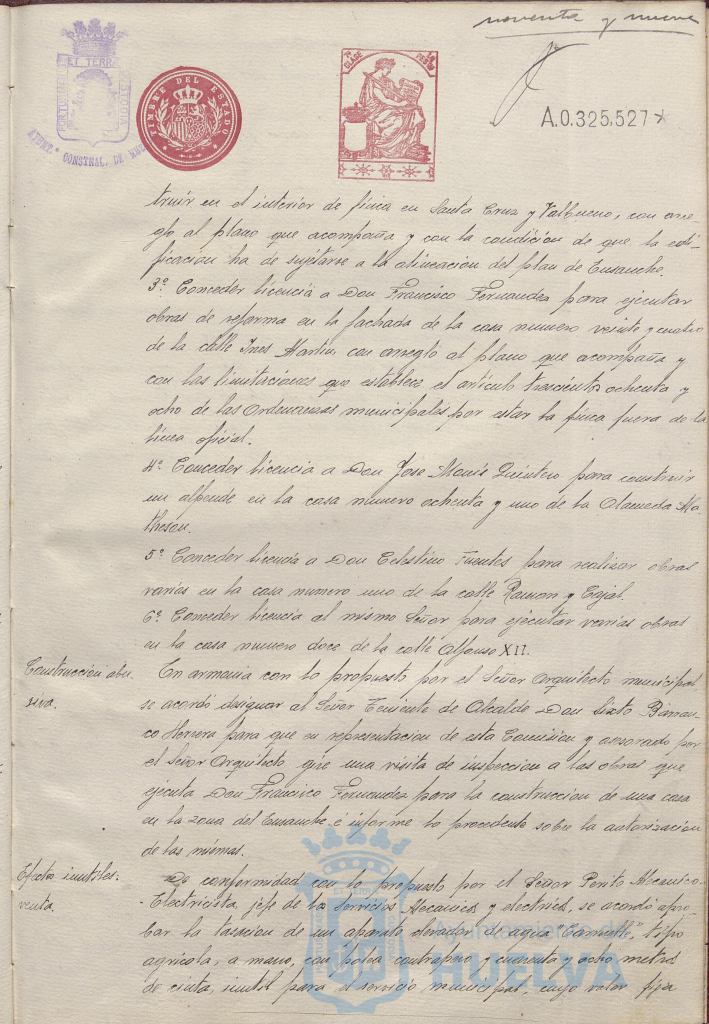 noventa y nueve
PORTUS MARIS ET TERRAE CUSTODIA
AYUNT.º CONSTNAL. DE HUELVA
TIMBRE DEL ESTADO
CLASE
A.0.325.527*
truir en el interior de finca en Santa Cruz y Valbueno, con arre-
glo al plano que acompaña y con la condicion de que la edi-
ficacion ha de sujetarse a la alineacion del plan de Ensanche.
3º. Conceder licencia a Don Francisco Fernandez para ejecutar
obras de reforma en la fachada de la casa numero veinte y cuatro
de la calle Ines Martin con arreglo al plano que acompaña y
con las limitaciones que establece el articulo trescientos ochenta y
ocho de las Ordenanzas municipales por estar la finca fuera de la
linea oficial.
4º. Conceder licencia a Don Jose Maria Quintero para construir
un alpende en la casa numero ochenta y uno de la Alameda Ma-
theson.
5º. Conceder licencia a Don Celestino Fuentes para realizar obras
varias en la casa numero uno de la calle Ramon y Cajal.
6º. Conceder licencia al mismo Señor para ejecutar varias obras
en la casa numero doce de la calle Alfonso XII.
Construccion abu-
siva.
En armonia con lo propuesto por el Señor Arquitecto municipal
se acordó designar al Señor Teniente de Alcalde Don Sixto Barran-
co Herrera para que en representacion de esta Comision y asesorado por
el Señor Arquitecto gire una visita de inspeccion a las obras que
ejecuta Don Francisco Fernandez para la construccion de una casa
en la zona del Ensanche é informe lo procedente sobre la autorizacion
de las mismas.
Efectos inutiles:
venta.
De conformidad con lo propuesto por el Señor Perito Mecanico-
-Electricista, jefe de los Servicios Mecanicos y electricos, se acordó apro-
bar la tasacion de un aparato elevador de agua "Carruette", tipo
agricola, a mano, con polea contrapeso y cuarenta y ocho metros
de cinta, inutil para el servicio municipal, cuyo valor fija
Ayuntamiento de
HUELVA